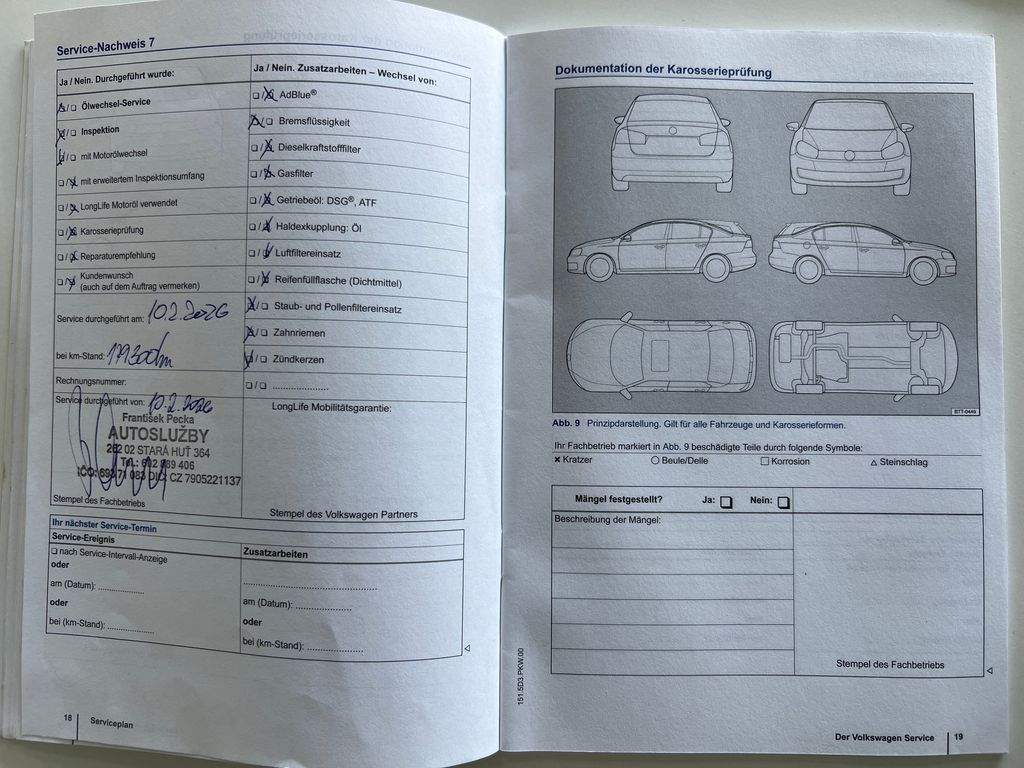 Service-Nachweis 7
Ja / Nein. Durchgeführt wurde:
☒/☐ Ölwechsel-Service
☒/☐ Inspektion
☒/☐ mit Motorölwechsel
☐/☒ mit erweitertem Inspektionsumfang
☐/☒ LongLife Motoröl verwendet
☐/☒ Karosserieprüfung
☐/☒ Reparaturempfehlung
☐/☒ Kundenwunsch
(auch auf dem Auftrag vermerken)
Service durchgeführt am: 10.2.2026
bei km-Stand:
Rechnungsnummer:
Service durchgeführt von: 10.2.2026
František Pecka
AUTOSLUŽBY
262 02 STARÁ HUŤ 364
CZ 7905221137
Stempel des Fachbetriebs
Ja / Nein. Zusatzarbeiten – Wechsel von:
☐/☒ AdBlue®
☒/☐ Bremsflüssigkeit
☐/☒ Dieselkraftstofffilter
☐/☒ Gasfilter
☐/☒ Getriebeöl: DSG®, ATF
☐/☒ Haldexkupplung: Öl
☐/☒ Luftfiltereinsatz
☐/☒ Reifenfüllflasche (Dichtmittel)
☒/☐ Staub- und Pollenfiltereinsatz
☒/☐ Zahnriemen
☒/☐ Zündkerzen
☐/☐ ......................
LongLife Mobilitätsgarantie:
Stempel des Volkswagen Partners
Ihr nächster Service-Termin
Service-Ereignis
☐ nach Service-Intervall-Anzeige
oder
am (Datum): ..................
oder
bei (km-Stand): ..................
Zusatzarbeiten
..................................................
am (Datum): .....................
oder
bei (km-Stand): .....................
18 Serviceplan
Dokumentation der Karosserieprüfung
BTT-0449
Abb. 9 Prinzipdarstellung. Gilt für alle Fahrzeuge und Karosserieformen.
Ihr Fachbetrieb markiert in Abb. 9 beschädigte Teile durch folgende Symbole:
✕ Kratzer ○ Beule/Delle ☐ Korrosion △ Steinschlag
Mängel festgestellt? Ja: ☐ Nein: ☐
Beschreibung der Mängel:
Stempel des Fachbetriebs
151.5D3.PKW.00
Der Volkswagen Service 19